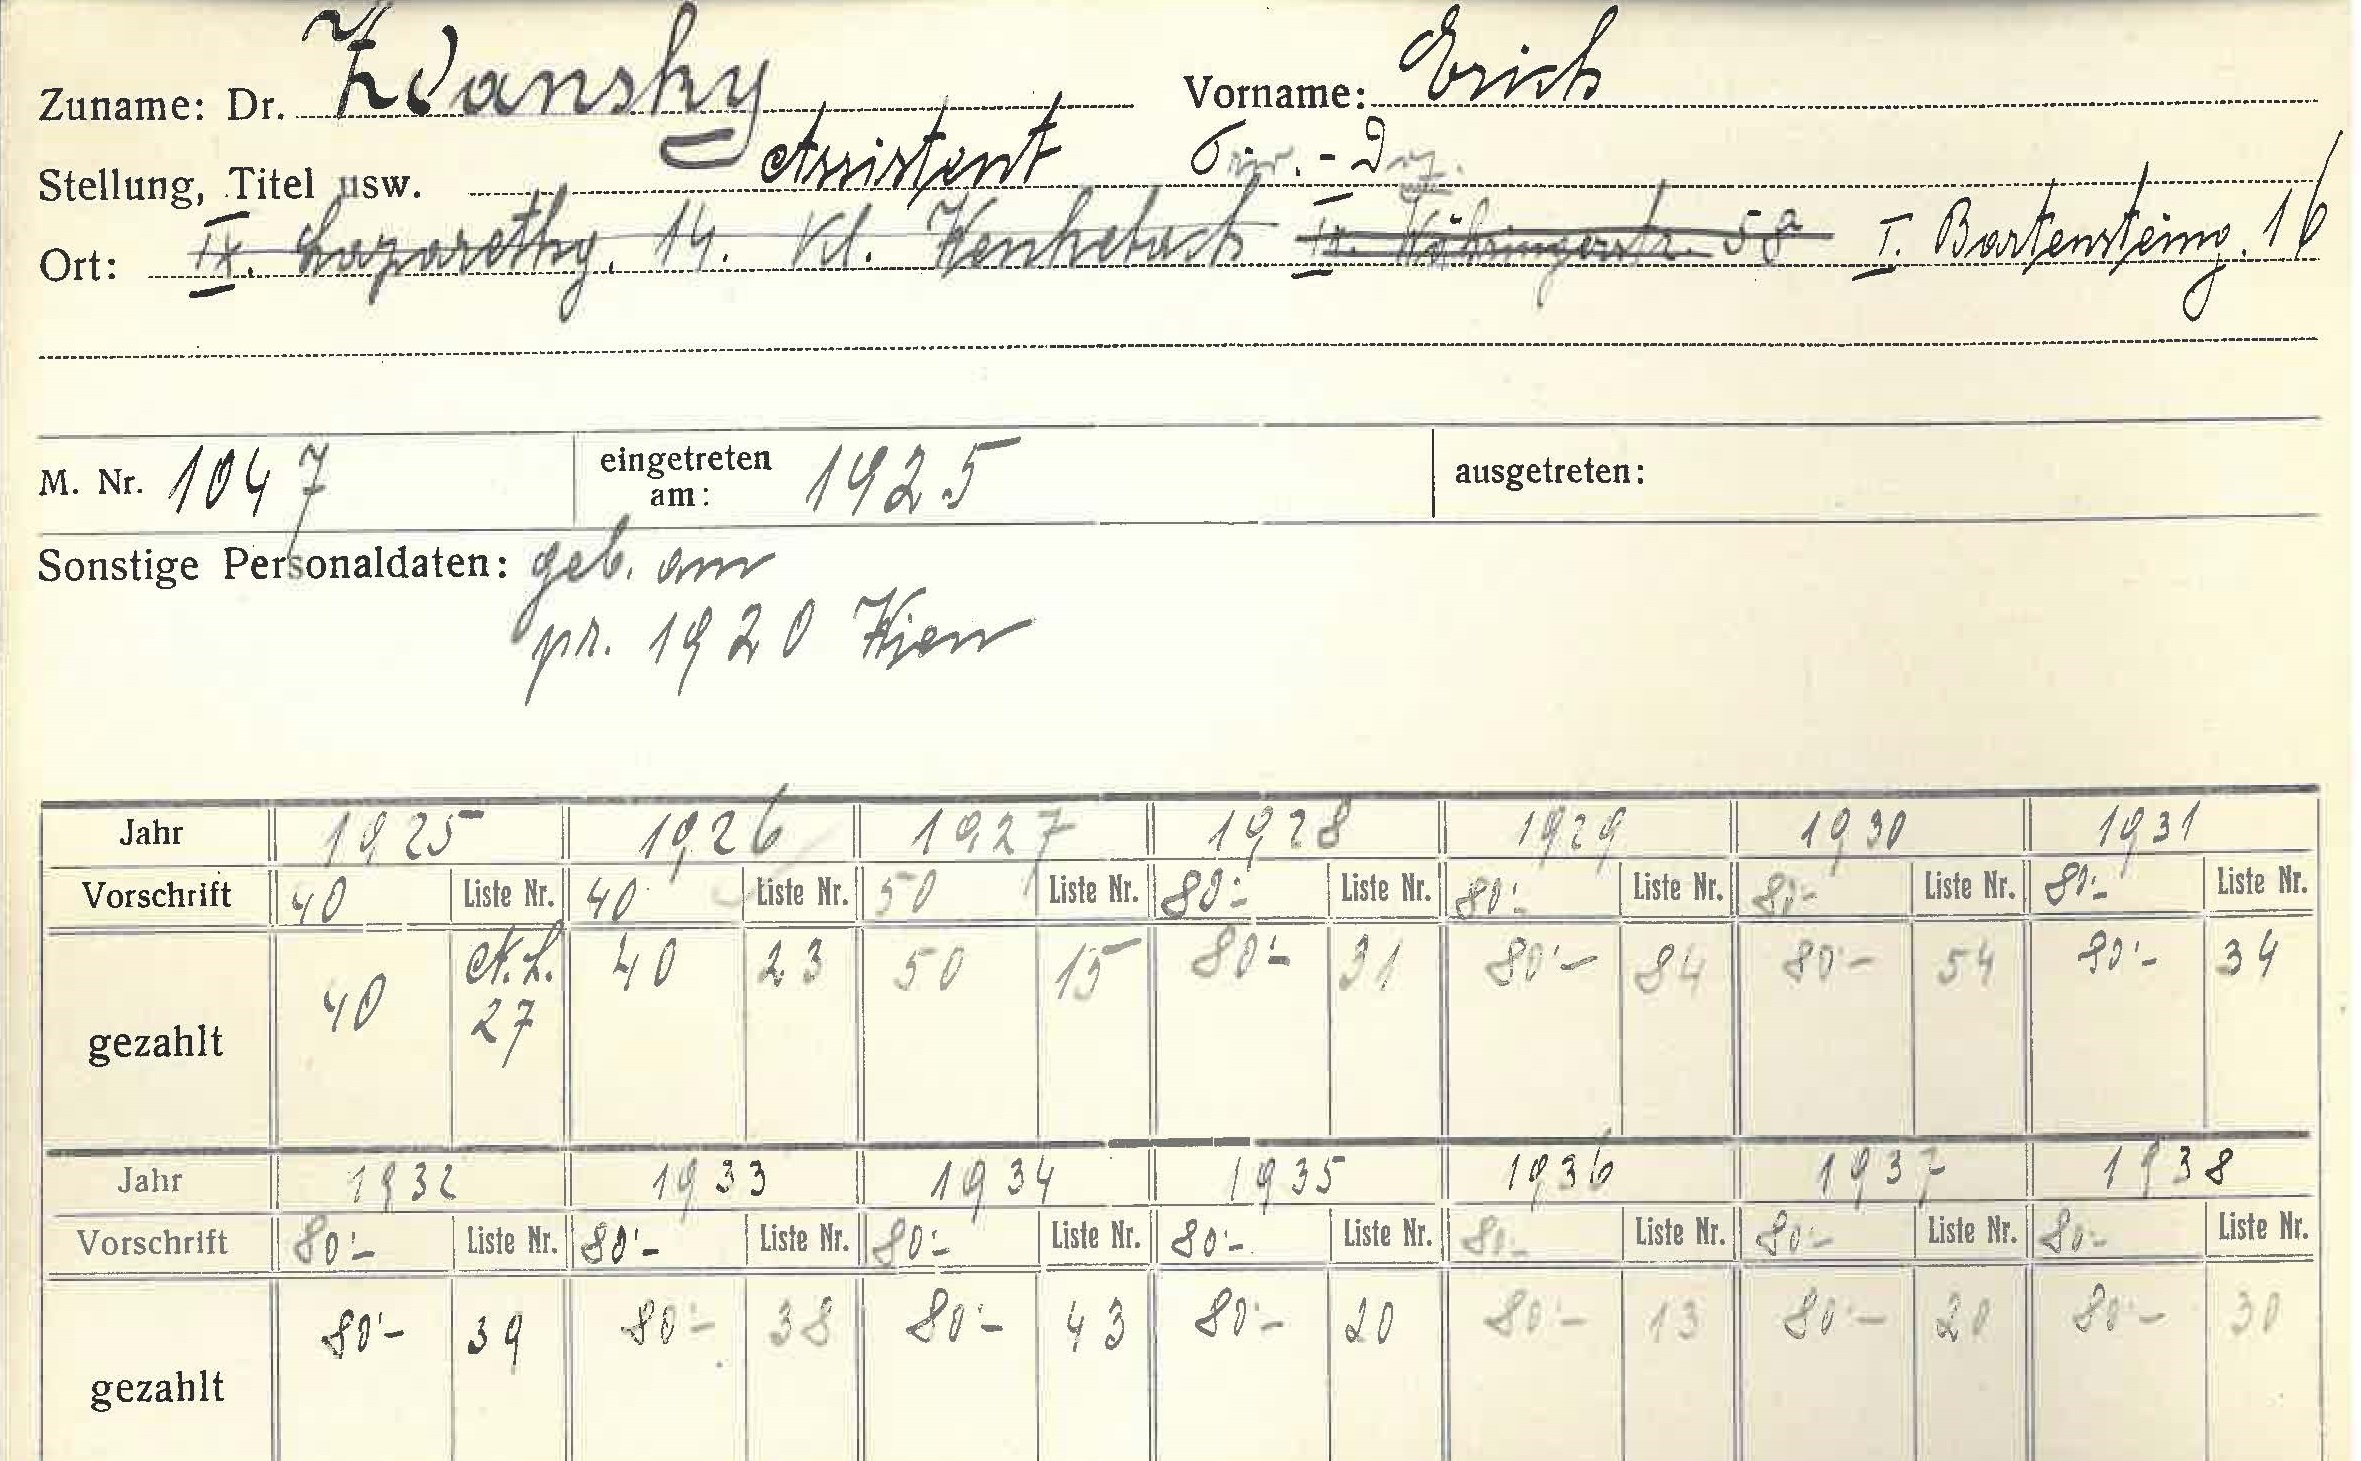 Zuname: Dr. Zdansky Vorname: Erich
Stellung, Titel usw. Assistent Priv.-Doz.
Ort: IX. Lazarethg. 14. Kl. Wenkebach IX. Währingerstr. 58 I. Bartensteing. 16
M. Nr. 1047 eingetreten am: 1925 ausgetreten:
Sonstige Personaldaten: geb. am
pr. 1920 Wien
Jahr 1925 1926 1927 1928 1929 1930 1931
Vorschrift 40 Liste Nr. 40 Liste Nr. 50 Liste Nr. 80.- Liste Nr. 80.- Liste Nr. 80.- Liste Nr. 80.- Liste Nr.
gezahlt 40 A.L. 27 40 23 50 15 80.- 31 80.- 84 80.- 54 80.- 34
Jahr 1932 1933 1934 1935 1936 1937 1938
Vorschrift 80.- Liste Nr. 80.- Liste Nr. 80.- Liste Nr. 80.- Liste Nr. 80.- Liste Nr. 80.- Liste Nr. 80.- Liste Nr.
gezahlt 80.- 39 80.- 38 80.- 43 80.- 20 80.- 13 80.- 20 80.- 30